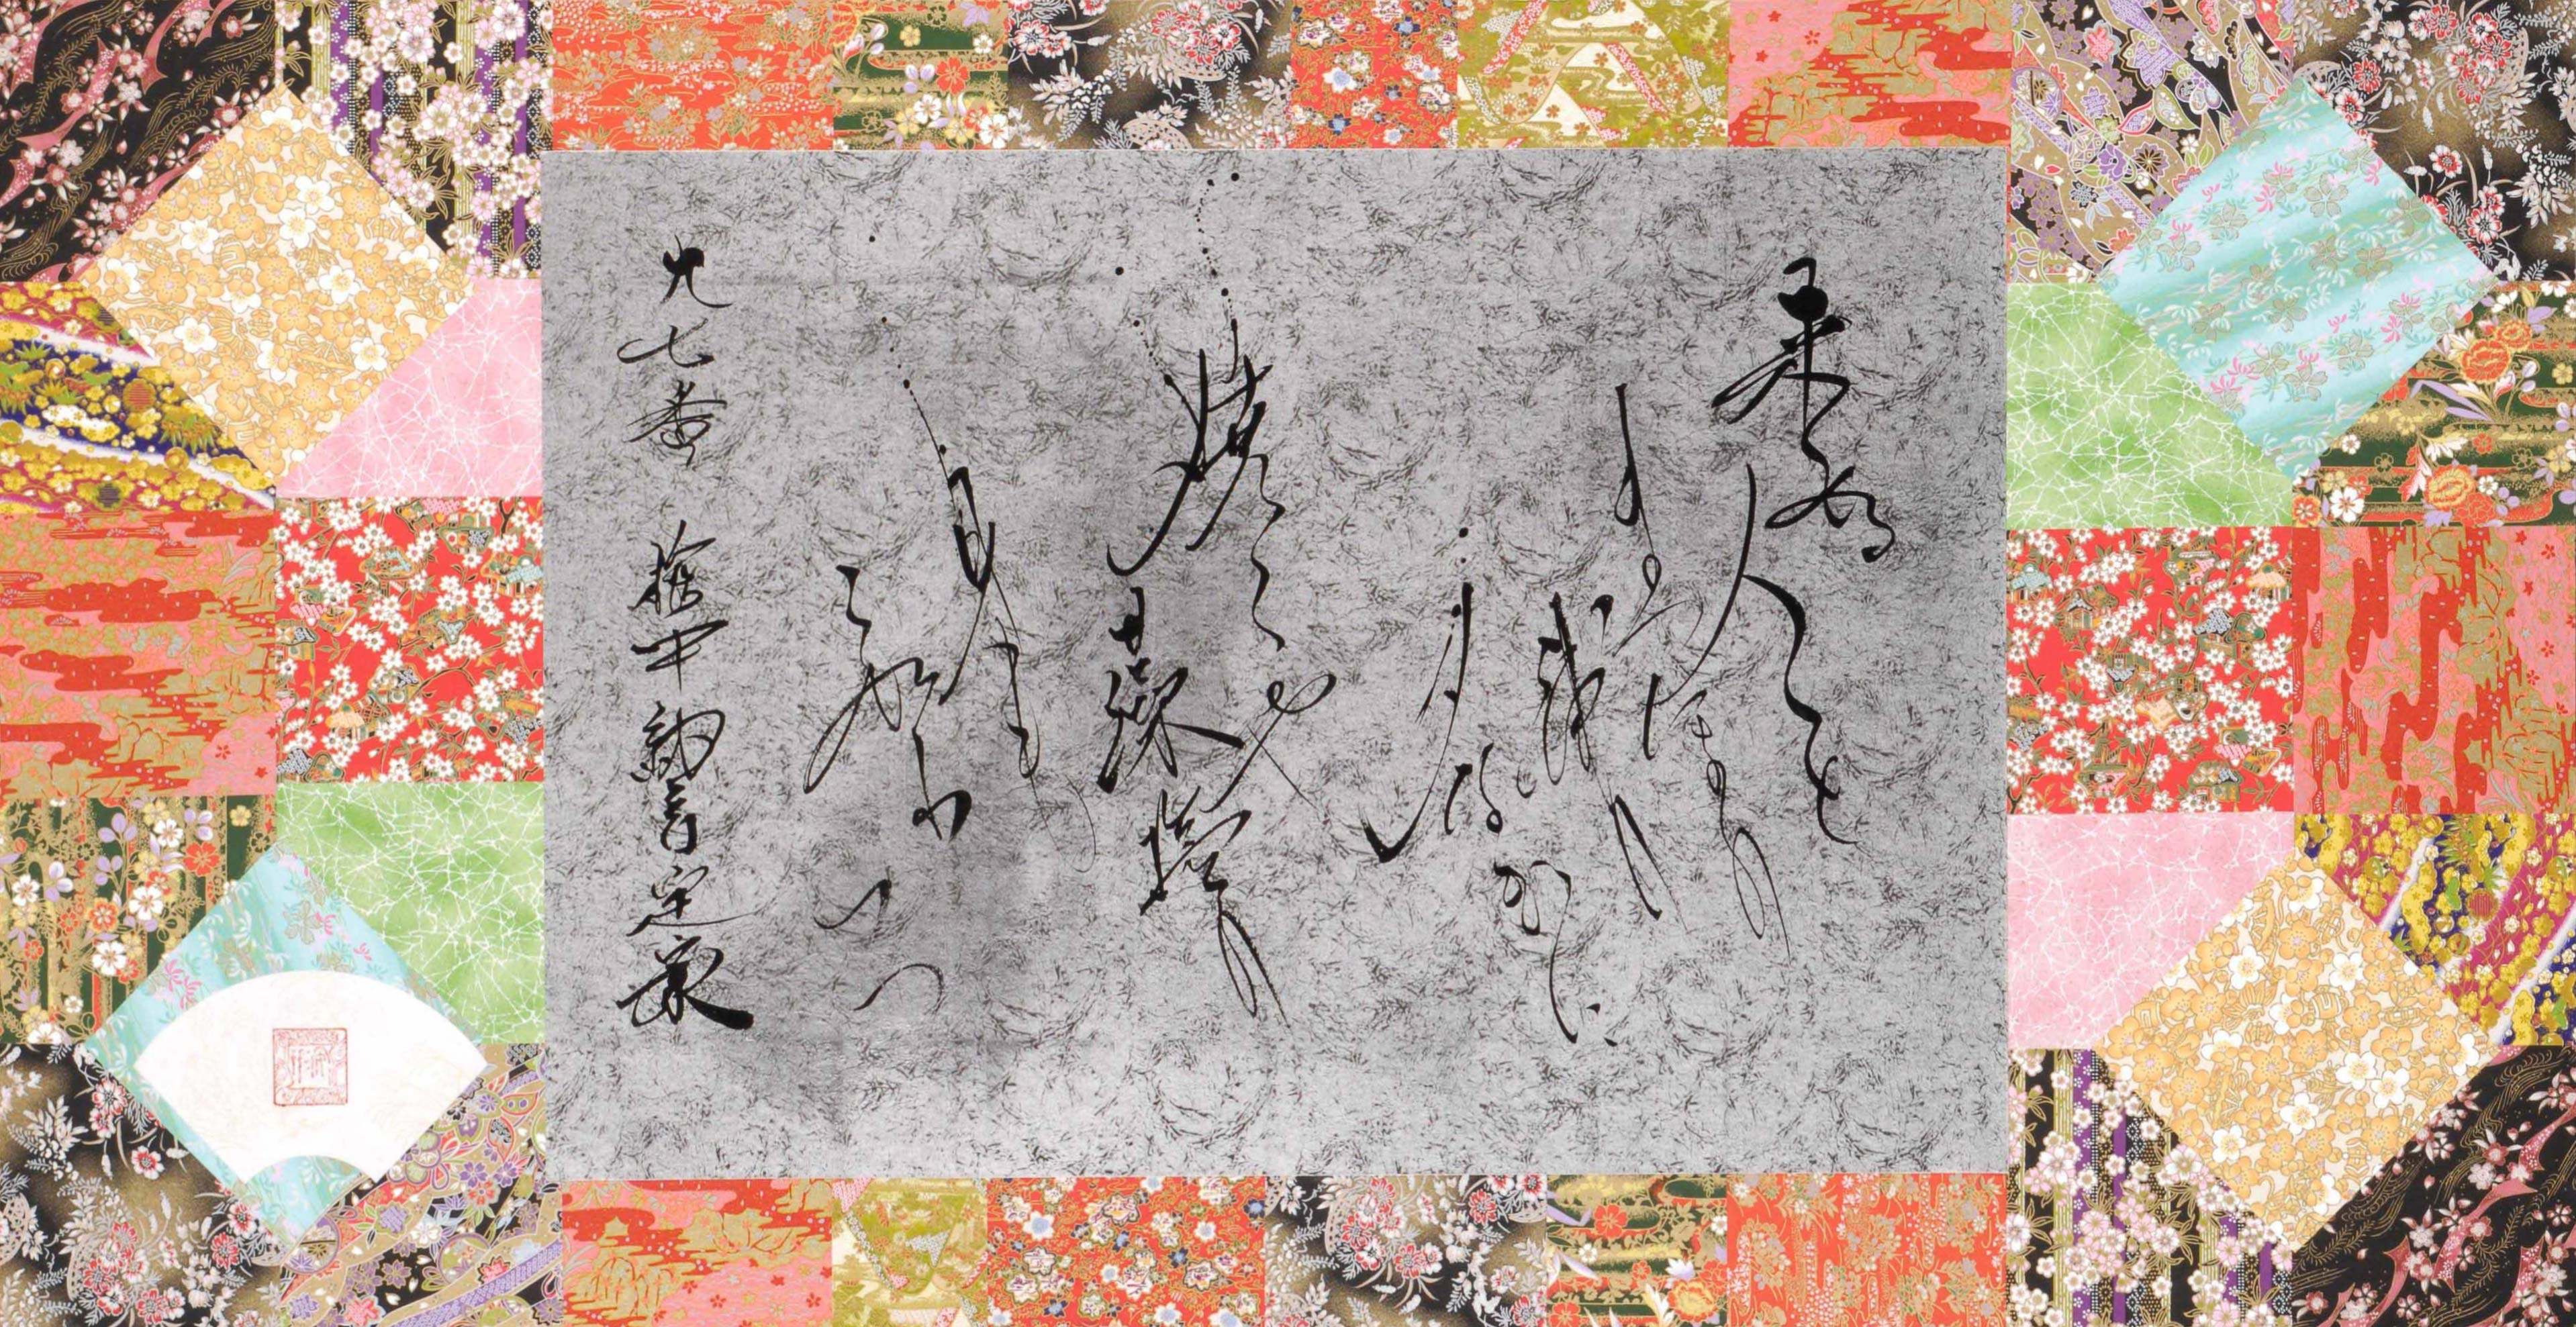 来ぬ
人を
まつほの
浦の
夕なぎに
焼くや
藻塩の
身も
こがれ
つつ
九七番 権中納言定家